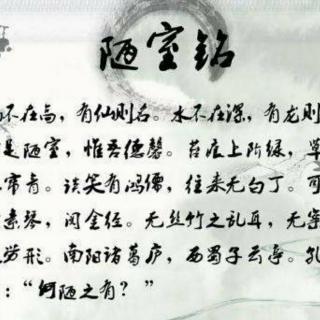 陋室铭
不在高，有仙则名。水不在深，有龙则
是陋室，惟吾德馨。苔痕上阶绿，草
帘青。谈笑有鸿儒，往来无白丁。可
素琴，阅金经。无丝竹之乱耳，无案
劳形。南阳诸葛庐，西蜀子云亭。孔
：“何陋之有？”